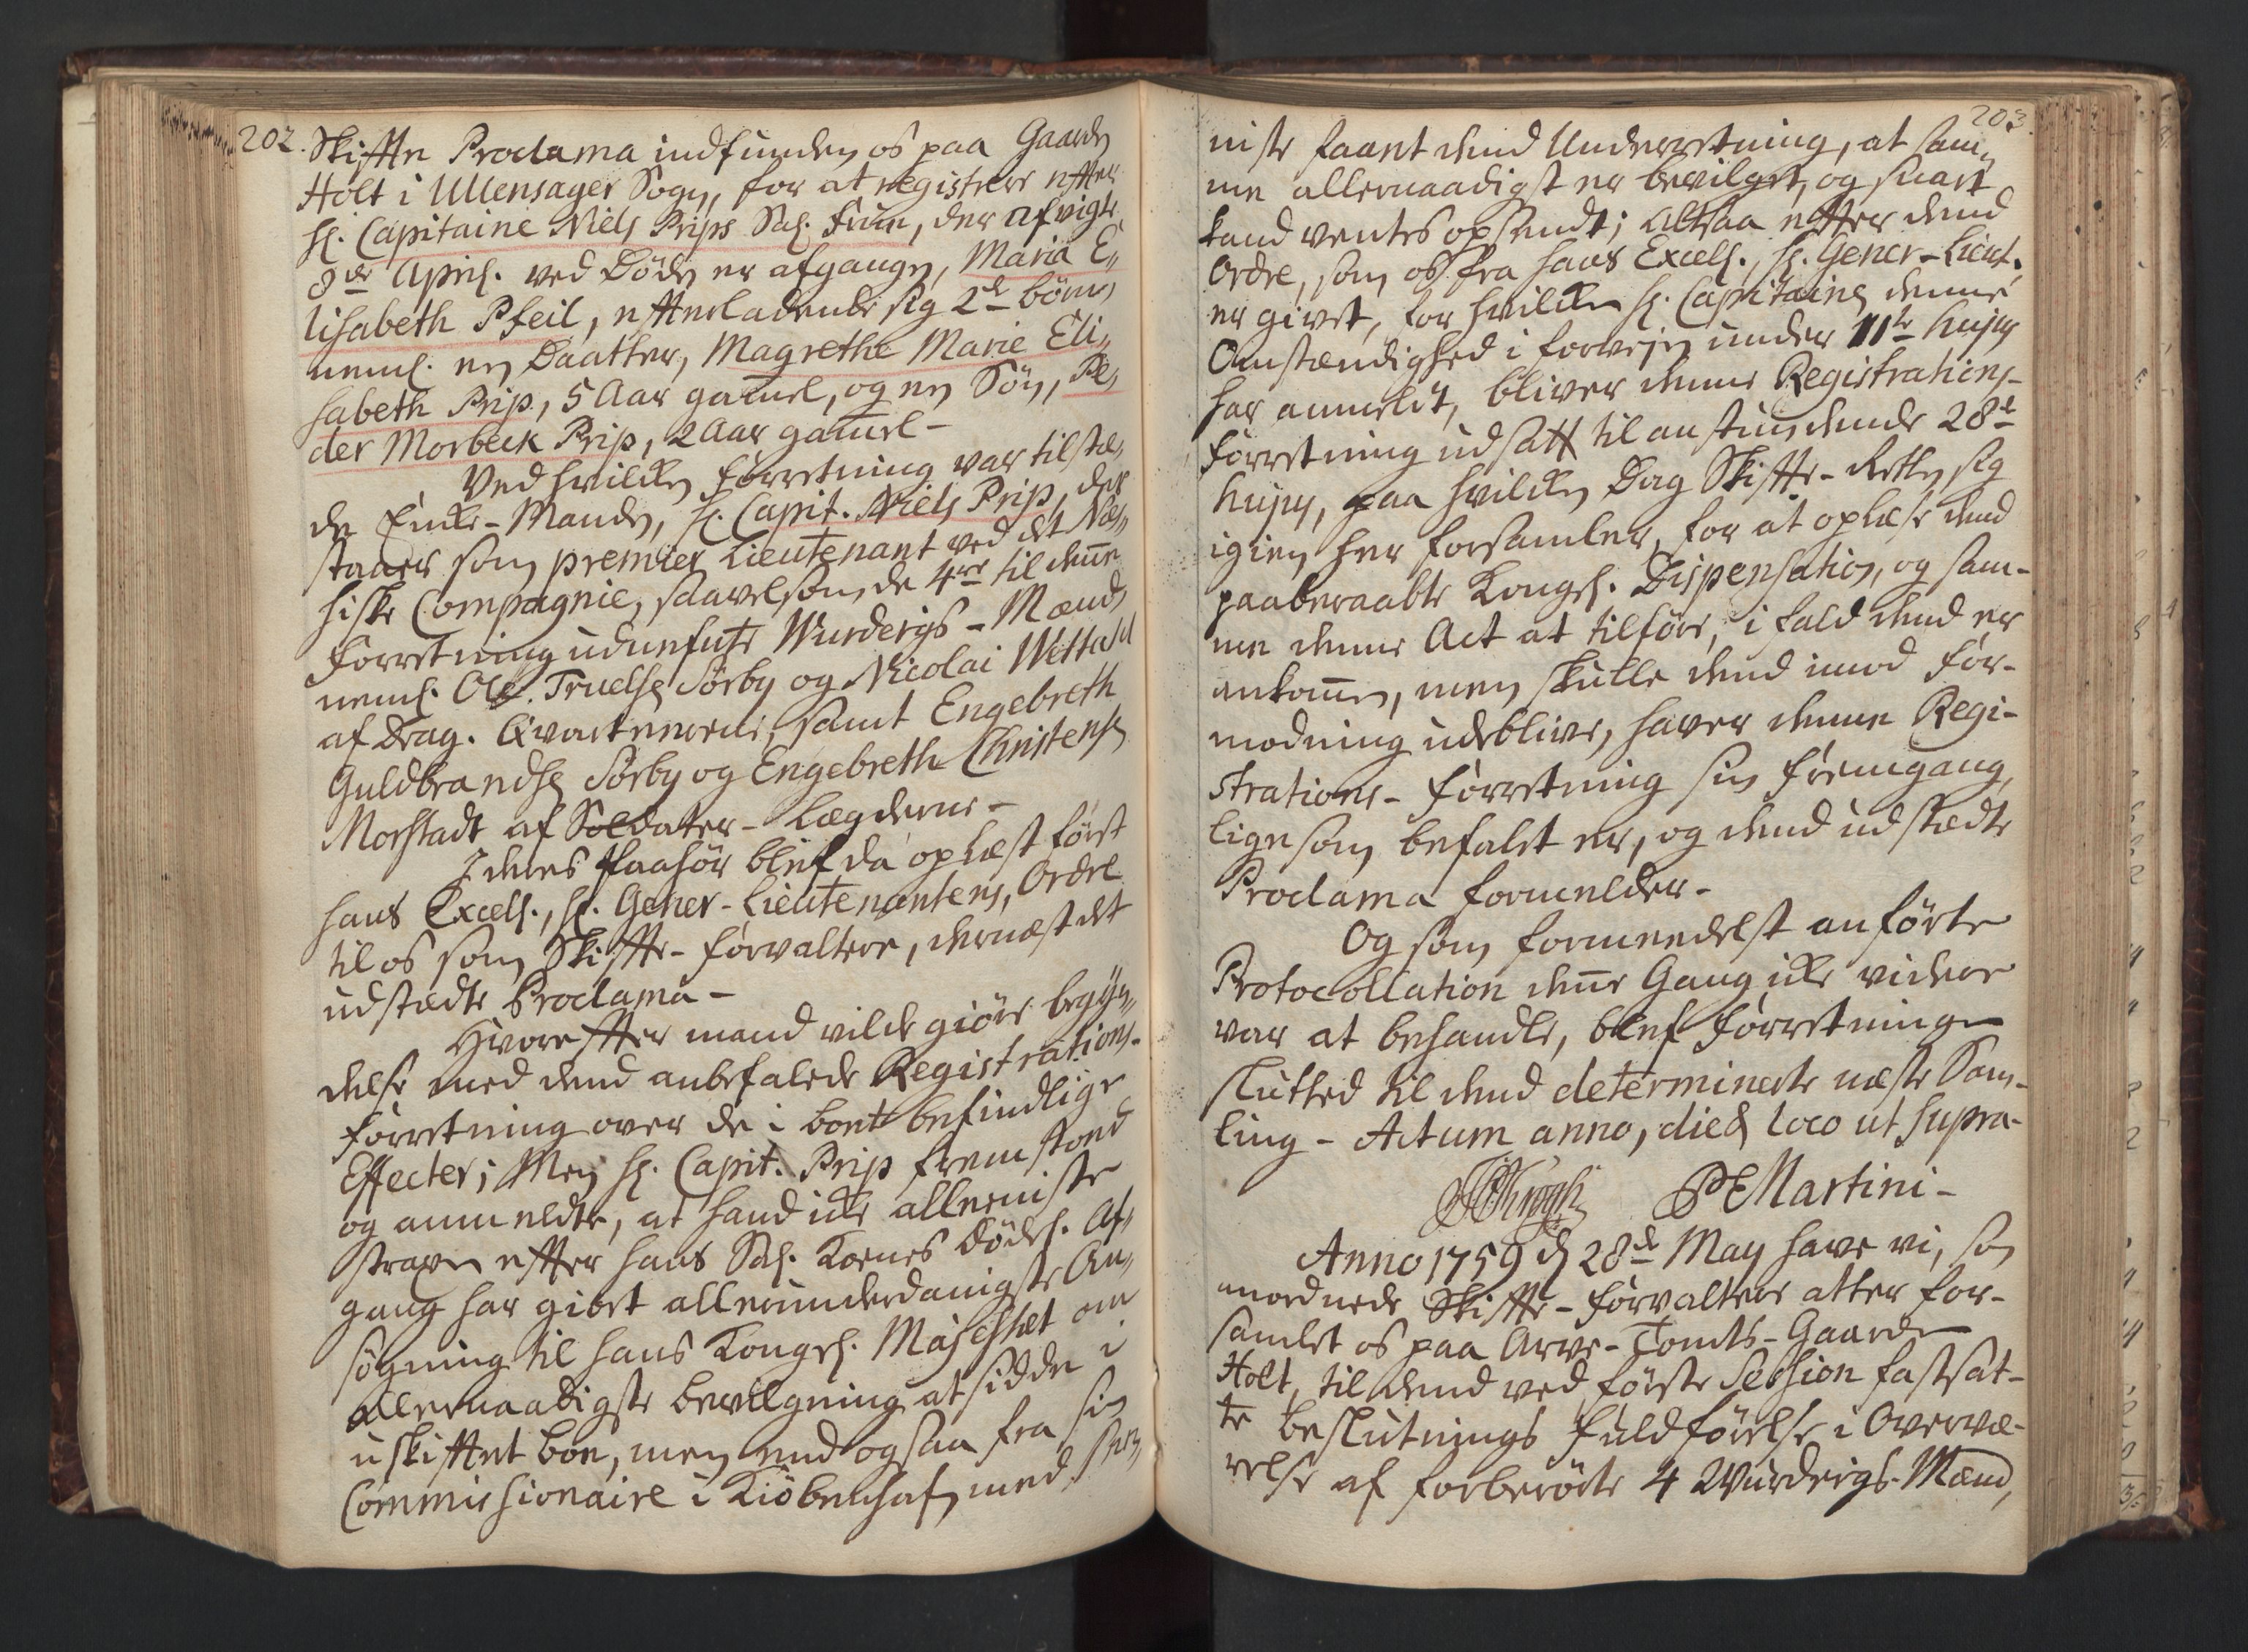 202.
Skifte Proclama indfunden os paa Gaarden
Holt i Ullensager Sogn, for at registrere efter
Hr. Capitaine Niels Prips Sal. Frue, der afvigte
8de April. ved Døden er afgangen, Maria E„
lisabeth Pfeil, efterladende sig 2de børn,
neml. en Daatter, Magrethe Marie Eli„
sabeth Prip, 5 Aar gamel, og en Søn, Pe„
der Morbeck Prip, 2 Aar gamel -
Ved hvilken Forretning var tilstæ„
de Enke-Manden, Hr. Capit. Niels Prip, der
staaer som premier Lieutenant ved det Næs„
siske Compagnie, saavelsom de 4re til denne
Forretning udnefnte Wurderings-Mænd,
neml. Ole Truelsen Sørby og Nicolai
af Drag. Qvartererne, samt Engebreth
Guldbrandsen Sørby og Engebreth Christensen
Morstadt af Soldater-Lægderne -
I deres Paahør blef da oplæst først
hans Excell., Hr. Gener-Lieutenantens, Ordre
til os som Skifte-Forvaltere, dernæst det
udstædte Proclama -
Hvorefter mand vilde giøre begyn„
delse med dend anbefalede Registrations-
Forretning over de i boet befindlige
Effecter; Men Hr. Capit. Prip fremstoed
og anmeldte, at hand ikke allerniste
straxen efter hans Sal. Kones Dødel. Af„
gang har giort allerunderdanigste An„
søgning til hans Kongel. Majesthet om
allernaadigste bevilgning at sidde i
uskiftet boe, men end ogsaa fra sin
Commissionaire i Kiøbenhafn med
203.
niste faaet dend Underretning, at sam„
me allernaadigst er bevilget, og snart
kand ventes opsendt; Altsaa efter dend
Ordre, som os fra hans Excell., Hr. Gener-Lieut.
er givet, for hvilken Hr. Capitainen denne
Omstændighed i forvejen under 11te hujus
har anmeldt, bliver denne Registrations-
Forretning udsatt til anstundende 28de
hujus, paa hvilken Dag Skifte-Retten sig
igien her forsamler, for at oplæse dend
paaberaabte Kongel. Dispensation, og sam-
me denne Act at tilføre, i fald dend er
ankommen, men skulle dend imod For-
modning udeblive, haver denne Regi-
strations-Forretning sin fremgang,
ligesom befalet er, og dend udstædte
Proclama formelder -
Og som formeedelst anførte
Protocollation denne Gang ikke videre
var at behandle, blef Forretningen
sluttet til dend determinerte næste Sam-
ling - Actum anno, die & loco ut supra -
PEMartini -
Anno 1759 d 28de May have vi, som
anordnede Skifte-Forvaltere atter for-
samlet os paa Arve-Tomts-Gaarden
Holt, til dend ved første Session fastsat-
te beslutnings fuldførelse i Overvæ-
relse af forberørte 4 Wurderings-Mænd,